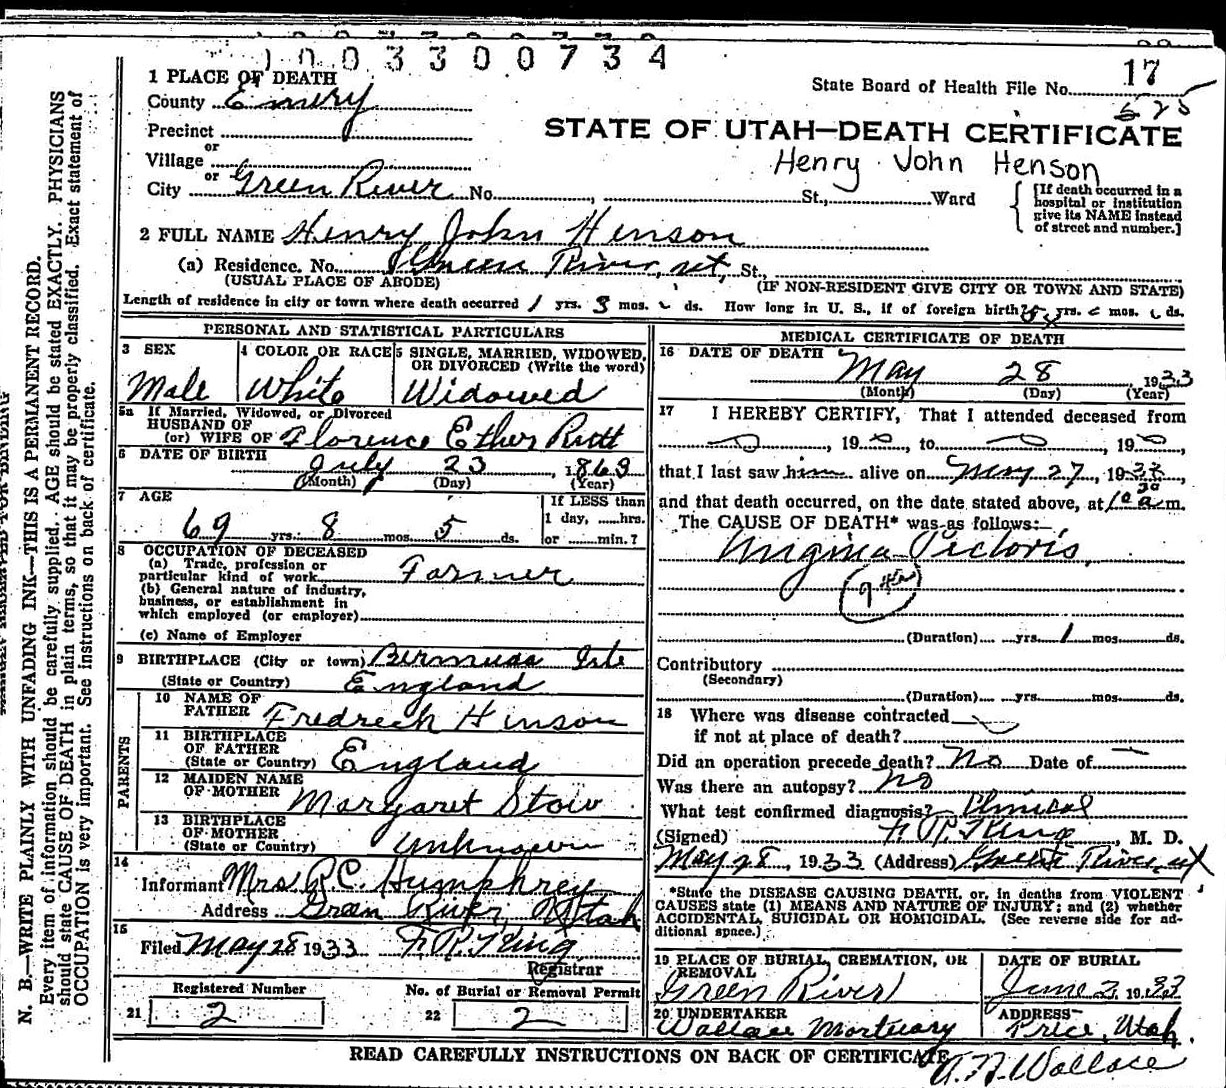 1003300734
1 PLACE OF DEATH
State Board of Health File No. 17
County Emery
Precinct
STATE OF UTAH—DEATH CERTIFICATE
or
Village
Henry John Henson
or
City Green River No. St., Ward
[If death occurred in a
hospital or institution
give its NAME instead
of street and number.]
2 FULL NAME Henry John Henson
(a) Residence. No. Green River, ut, St.,
(USUAL PLACE OF ABODE) (IF NON-RESIDENT GIVE CITY OR TOWN AND STATE)
Length of residence in city or town where death occurred 1 yrs. 3 mos. ds. How long in U. S., if of foreign birth? yrs. mos. ds.
PERSONAL AND STATISTICAL PARTICULARS
3 SEX
Male
4 COLOR OR RACE
White
5 SINGLE, MARRIED, WIDOWED,
OR DIVORCED (Write the word)
Widowed
5a If Married, Widowed, or Divorced
HUSBAND OF
(or) WIFE OF Florence Ether
6 DATE OF BIRTH July 23, 1863
(Month) (Day) (Year)
7 AGE
69 yrs. 8 mos. 5 ds.
If LESS than
1 day, hrs.
or min.?
8 OCCUPATION OF DECEASED
(a) Trade, profession or
particular kind of work Farmer
(b) General nature of industry,
business, or establishment in
which employed (or employer)
(c) Name of Employer
9 BIRTHPLACE (City or town) Bermuda Isle
(State or Country) England
PARENTS
10 NAME OF
FATHER Fredrech Hinson
11 BIRTHPLACE
OF FATHER
(State or Country) England
12 MAIDEN NAME
OF MOTHER Margaret Stow
13 BIRTHPLACE
OF MOTHER
(State or Country) Unknown
14
Informant Mrs R.C. Humphrey
Address Green River, Utah
15
Filed May 28 1933 F. R. King
Registrar
Registered Number
21 2
No. of Burial or Removal Permit
22 2
MEDICAL CERTIFICATE OF DEATH
16 DATE OF DEATH
May 28, 1933
(Month) (Day) (Year)
17 I HEREBY CERTIFY, That I attended deceased from
, 19 , to , 19
that I last saw him alive on May 27, 1933,
and that death occurred, on the date stated above, at 10 30 a m.
The CAUSE OF DEATH* was as follows:
Angina Pectoris
(Duration) yrs. 1 mos. ds.
Contributory
(Secondary)
(Duration) yrs. mos. ds.
18 Where was disease contracted
if not at place of death?
Did an operation precede death? No Date of —
Was there an autopsy? No
What test confirmed diagnosis? Clinical
(Signed) F. R. King, M. D.
May 28, 1933 (Address) Green River, ut
*State the DISEASE CAUSING DEATH, or, in deaths from VIOLENT
CAUSES state (1) MEANS AND NATURE OF INJURY; and (2) whether
ACCIDENTAL, SUICIDAL OR HOMICIDAL. (See reverse side for ad-
ditional space.)
19 PLACE OF BURIAL, CREMATION, OR
REMOVAL
Green River
DATE OF BURIAL
June 2, 1933
20 UNDERTAKER
Wallace Mortuary
ADDRESS
Price, Utah
READ CAREFULLY INSTRUCTIONS ON BACK OF CERTIFICATE
Wallace
N. B.—WRITE PLAINLY WITH UNFADING INK—THIS IS A PERMANENT RECORD.
Every item of information should be carefully supplied. AGE should be stated EXACTLY. PHYSICIANS
should state CAUSE OF DEATH in plain terms, so that it may be properly classified. Exact statement of
OCCUPATION is very important. See instructions on back of certificate.